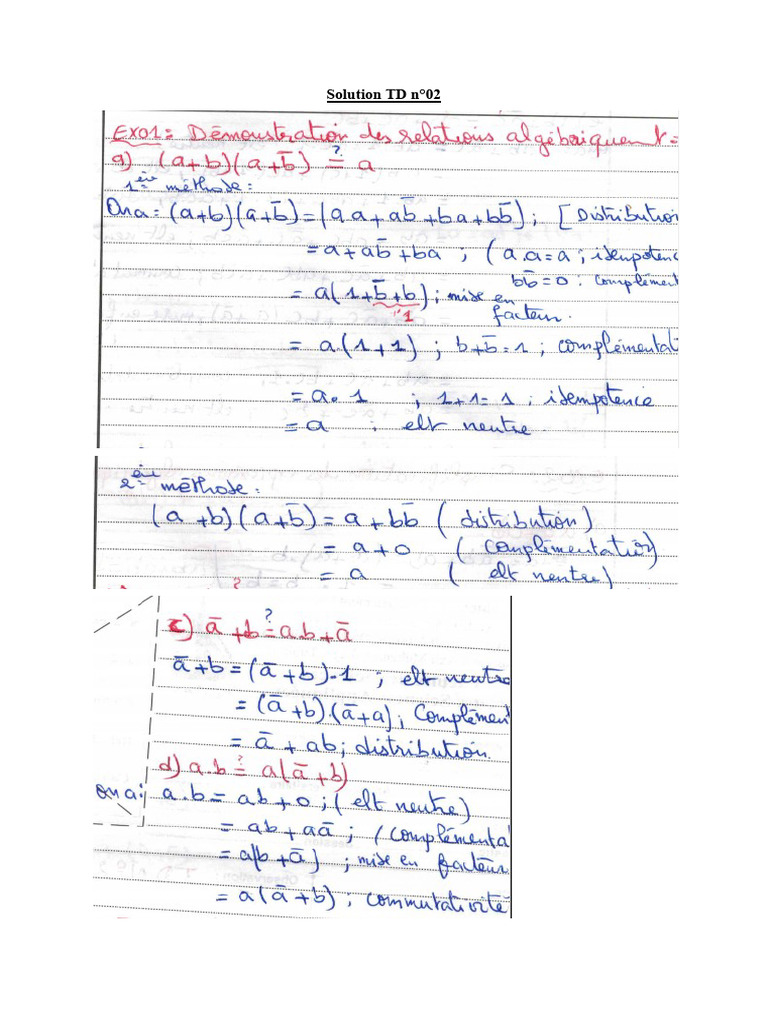 Solution TD n°02
Exo1: Démonstration des relations algébriquement:
a) (a+b)(a+b̅) ≟ a
1ère méthode:
On a: (a+b)(a+b̅) = (a.a + ab̅ + ba + bb̅) ; [Distribution
= a + ab̅ + ba ; ( a.a=a ; idempotence
bb̅=0 : complément
= a(1+b̅+b) ; mise en
"1
facteur.
= a.(1+1) ; b+b̅=1 ; complémentat
= a. 1 ; 1+1=1 ; idempotence
= a ; elt neutre
2ème méthode:
(a+b)(a+b̅) = a + bb̅ ( distribution)
= a+0 ( complémentation)
= a ( elt neutre)
c) a̅+b ≟ a.b+a̅
a̅+b = (a̅+b).1 ; elt neutre
= (a̅+b).(a̅+a) ; Complémen
= a̅ + ab ; distribution.
d) a.b ≟ a(a̅+b)
on a: a.b = ab+0 ; ( elt neutre)
= ab+aa̅ ; (complémenta
= a(b+a̅) ; mise en facteur
= a(a̅+b) ; commutativité